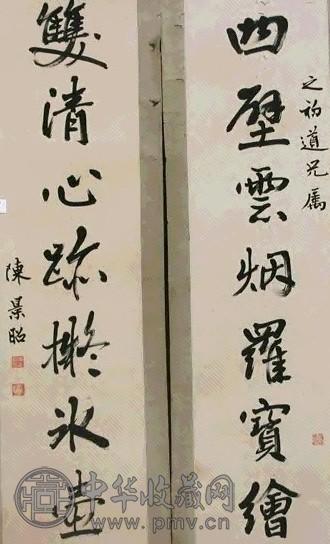 之初道兄属
四壁雲烟羅寶繪
雙清心跡擬冰壺
陳景昭
中华收藏网
www.pmv.cn